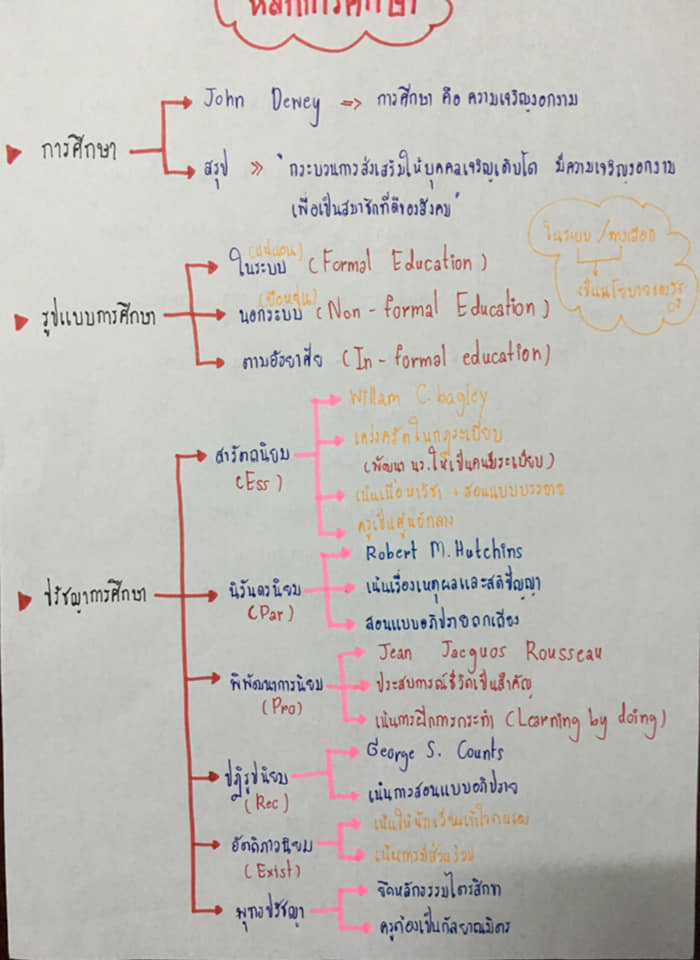 หลักการศึกษา
การศึกษา
John Dewey => การศึกษา คือ ความเจริญงอกงาม
สรุป >> "กระบวนการส่งเสริมให้บุคคลเจริญเติบโต มีความเจริญงอกงาม
เพื่อเป็นสมาชิกที่ดีของสังคม"
ในระบบ/ทางเลือก
เป็นนโยบายของรัฐ
รูปแบบการศึกษา
(แน่นอน)
ในระบบ (Formal Education)
(ยืดหยุ่น)
นอกระบบ (Non - formal Education)
ตามอัธยาศัย (In - formal education)
ปรัชญาการศึกษา
สารัตถนิยม
(Ess)
Willam C. bagley
เคร่งครัดในกฎระเบียบ
(พัฒนา นร. ให้เป็นคนมีระเบียบ)
เน้นเนื้อหาวิชา + สอนแบบบรรยาย
ครูเป็นศูนย์กลาง
นิรันดรนิยม
(Par)
Robert M. Hutchins
เน้นเรื่องเหตุผลและสติปัญญา
สอนแบบอภิปรายถกเถียง
พิพัฒนาการนิยม
(Pro)
Jean Jacguos Rousseau
ประสบการณ์ชีวิตเป็นสำคัญ
เน้นการฝึกการกระทำ (Learning by doing)
ปฏิรูปนิยม
(Rec)
George S. Counts
เน้นการสอนแบบอภิปราย
อัตถิภาวนิยม
(Exist)
เน้นให้นักเรียนเข้าใจตนเอง
เน้นการมีส่วนร่วม
พุทธปรัชญา
ยึดหลักธรรมไตรสิกขา
ครูต้องเป็นกัลยาณมิตร